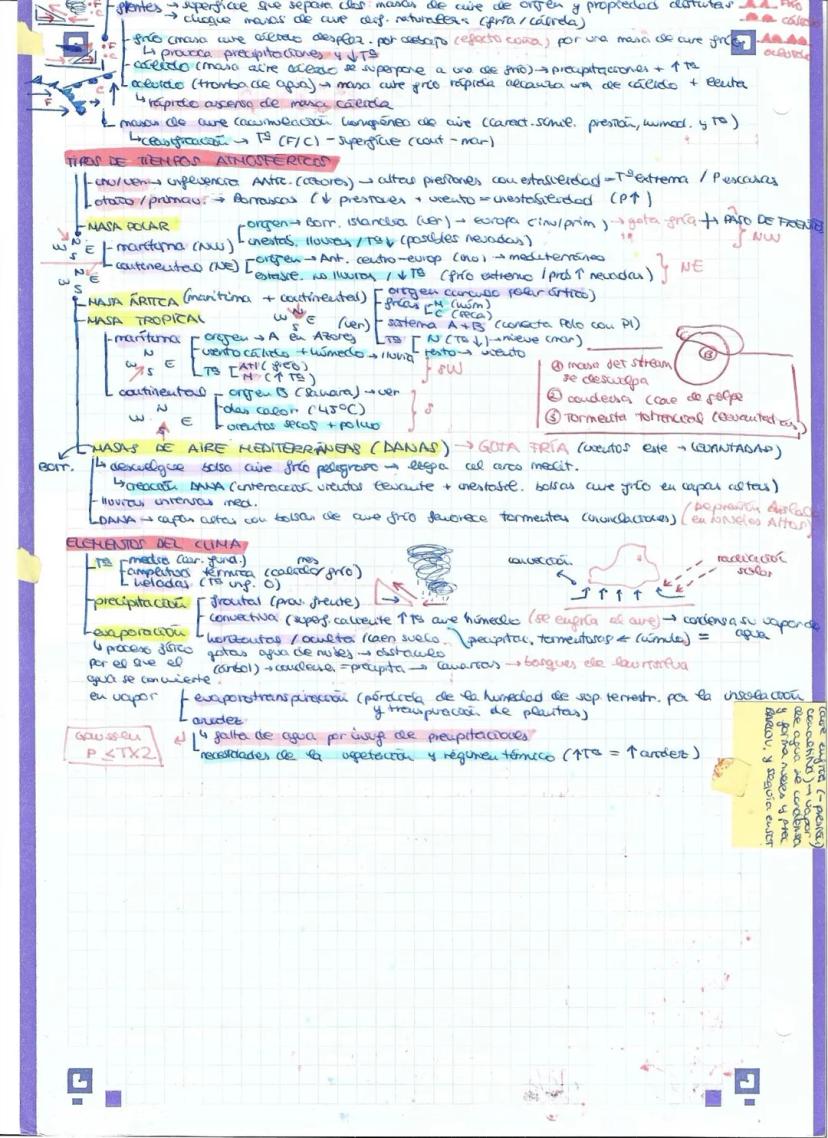 frentes → superficie que separa dos masas de aire de origen y propiedad distintas
choque masas de aire dif. naturaleza (fría/cálida)
frío (masa aire cálido desplaz. por debajo (efecto cuña) por una masa de aire frío
↳ provoca precipitaciones y ↓Tª
cálido (masa aire cálido se superpone a uno de frío) → precipitaciones + ↑Tª
ocluido (tromba de agua) → masa aire frío rápida alcanza una de cálido + lenta
↳ rápido ascenso de masa cálida
masas de aire (acumulación homogénea de aire (caract. simil. presión, humed. y Tª)
↳ clasificación → Tª (F/C) - superficie (cont - mar)
TIPOS DE TIEMPOS ATMOSFÉRICOS
inv/ver → influencia Antic. (Azores) → altas presiones con estabilidad = Tª extrema / P escasas
otoño/primav. → Borrascas (↓ presiones + viento = inestabilidad (P↑)
MASA POLAR
marítima (NW) origen → Borr. islandesa (ver) → europa (inv/prim) → gota fría + PASO DE FRENTES
inestab. lluvias / Tª↓ (posibles nevadas) } NW
continental (NE) origen → Ant. centro-europ (inv) → mediterráneo
estable. no lluvias / ↓Tª (frío extremo / nevadas) } NE
MASA ÁRTICA (marítima + continental)
origen círculo polar ártico)
frías N (húm) C (seca)
(ver) sistema A+B (conecta Polo con PI)
Tª N (Tª↓) → nieve (mar)
resto → viento
MASA TROPICAL
marítima origen → A en Azores
viento cálido + húmedo → lluvia
Tª } SW
N (↑Tª)
continental origen B (Sahara) → ver
olas calor (45ºC) } S
vientos secos + polvo
① masa Jet stream
se desculpa
② condensa (cae de golpe
③ Tormenta torrencial (levantadas)
B
MASAS DE AIRE MEDITERRÁNEAS (DANAS) → GOTA FRÍA (vientos este → LEVANTADAS)
Borr.
descuelgue bolsa aire frío peligroso → llega al arco medit.
↳ creación DANA (interacción vientos levante + inestabil. bolsas aire frío en capas altas)
lluvias intensas med.
DANA → capas altas con bolsas de aire frío favorece tormentas (inundaciones) (Depresión Aislada en Niveles Altos)
ELEMENTOS DEL CLIMA
Tª media
amplitud térmica (calor/frío)
heladas (Tª inf. 0)
convección
radiación solar
precipitación frontal (prov. frente)
convectiva (superf. caliente ↑Tª aire húmedo (se enfría el aire) → condensa su vapor de agua
precipitac. tormentosas ← (cúmulos) =
evaporación horizontal / oculta (caen suelo.
gotas agua de nubes → obstáculo
(árbol) → condens. = precipita → Canarias → bosques de laurisilva
↳ proceso físico
por el que el
agua se convierte
en vapor
evapotranspiración (pérdida de la humedad de sup. terrestr. por la insolación
y transpiración de plantas)
aridez
↳ falta de agua por insuf. de precipitaciones
necesidades de la vegetación y régimen térmico (↑Tª = ↑ aridez)
Gaussen
P ≤ TX2
aire enfría (- presión)
→ vapor
de agua se condensa
y forma nubes y